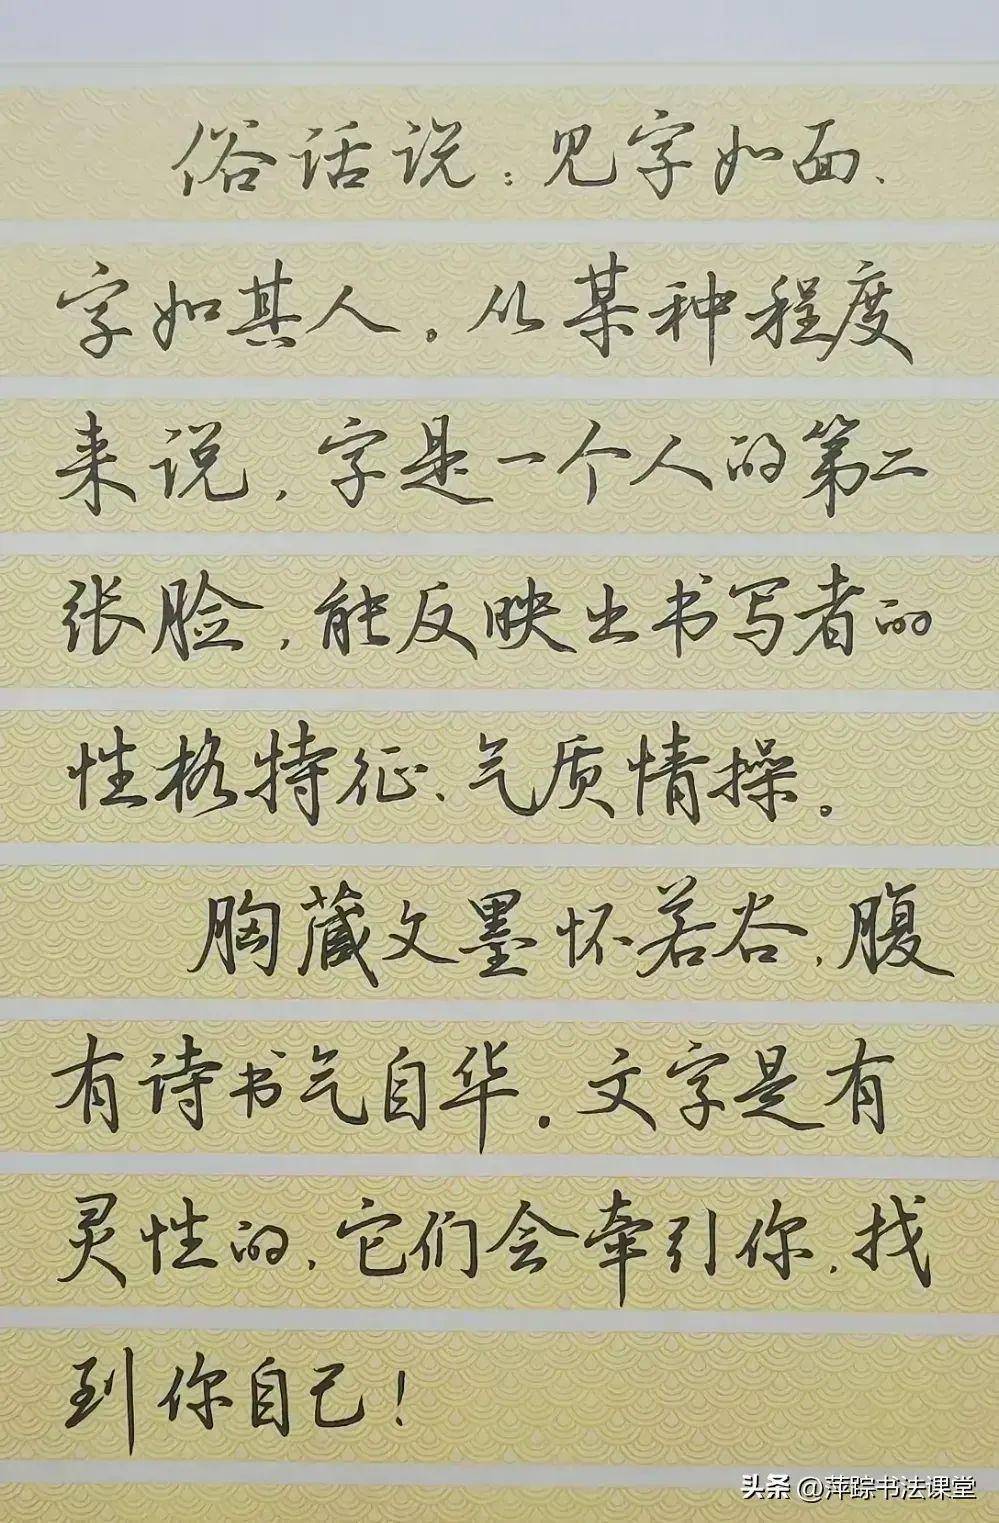 俗话说：见字如面、
字如其人。从某种程度
来说，字是一个人的第二
张脸，能反映出书写者的
性格特征、气质情操。
胸藏文墨怀若谷，腹
有诗书气自华。文字是有
灵性的，它们会牵引你，找
到你自己！
头条 @萍踪书法课堂